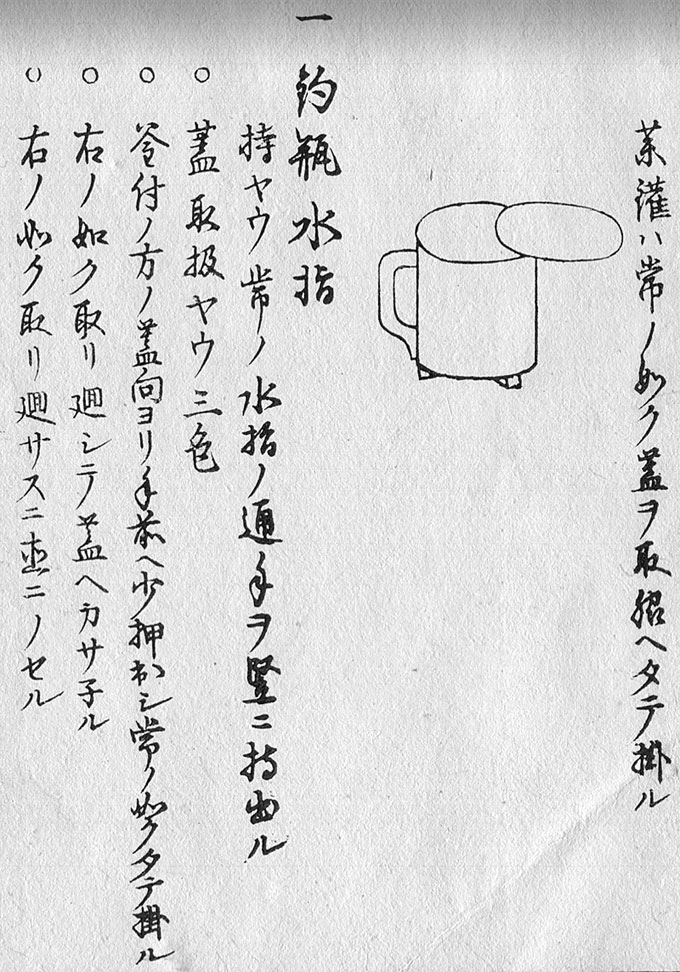 茶灌ハ常ノ如ク蓋ヲ取胴ヘタテ掛ル
一 釣瓶水指
持ヤウ常ノ水指ノ通手ヲ竪ニ持出ル
○ 蓋取扱ヤウ三色
○ 釜付ノ方ノ蓋向ヨリ手前ヘ少押出シ常ノ如クタテ掛ル
○ 右ノ如ク取リ廻シテ蓋ヘカサ子ル
○ 右ノ如ク取リ廻サスニ直ニノセル